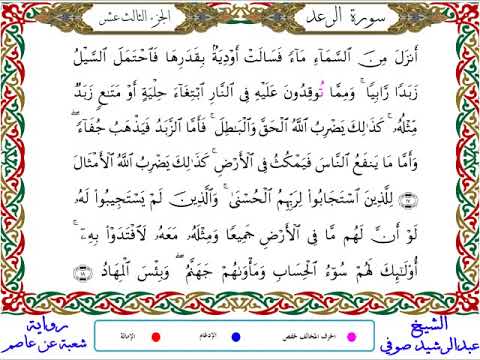 سورة الرعد
الجزء الثالث عشر
أَنزَلَ مِنَ ٱلسَّمَآءِ مَآءٗ فَسَالَتۡ أَوۡدِيَةُۢ بِقَدَرِهَا فَٱحۡتَمَلَ ٱلسَّيۡلُ
زَبَدٗا رَّابِيٗاۖ وَمِمَّا تُوقِدُونَ عَلَيۡهِ فِي ٱلنَّارِ ٱبۡتِغَآءَ حِلۡيَةٍ أَوۡ مَتَٰعٖ زَبَدٞ
مِّثۡلُهُۥۚ كَذَٰلِكَ يَضۡرِبُ ٱللَّهُ ٱلۡحَقَّ وَٱلۡبَٰطِلَۚ فَأَمَّا ٱلزَّبَدُ فَيَذۡهَبُ جُفَآءٗۖ
وَأَمَّا مَا يَنفَعُ ٱلنَّاسَ فَيَمۡكُثُ فِي ٱلۡأَرۡضِۚ كَذَٰلِكَ يَضۡرِبُ ٱللَّهُ ٱلۡأَمۡثَالَ
١٧ لِلَّذِينَ ٱسۡتَجَابُواْ لِرَبِّهِمُ ٱلۡحُسۡنَىٰۚ وَٱلَّذِينَ لَمۡ يَسۡتَجِيبُواْ لَهُۥ
لَوۡ أَنَّ لَهُم مَّا فِي ٱلۡأَرۡضِ جَمِيعٗا وَمِثۡلَهُۥ مَعَهُۥ لَٱفۡتَدَوۡاْ بِهِۦٓۚ
أُوْلَٰٓئِكَ لَهُمۡ سُوٓءُ ٱلۡحِسَابِ وَمَأۡوَىٰهُمۡ جَهَنَّمُۖ وَبِئۡسَ ٱلۡمِهَادُ ١٨
الشيخ
عبدالرشيد صوفي
الحرف المخالف لحفص
الإدغام
الإمالة
رواية
شعبة عن عاصم